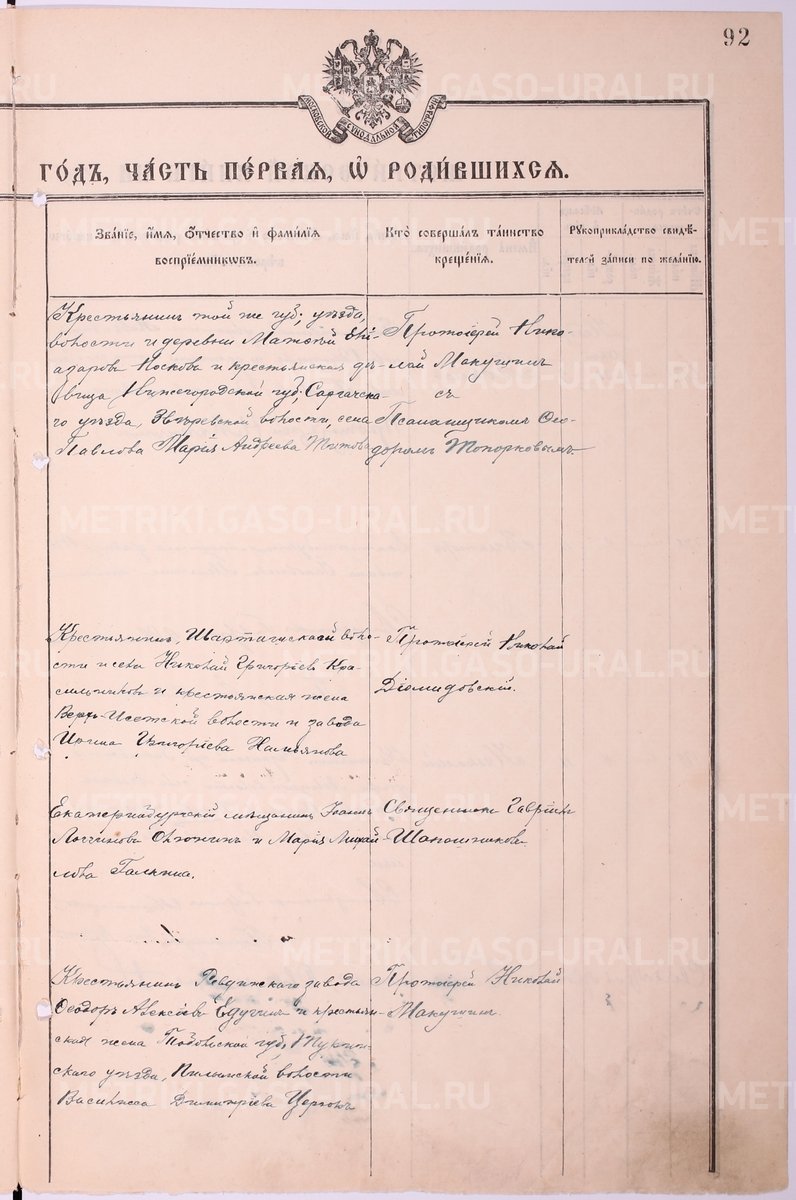 92
МОСКОВСКОЙ СѴНОДАЛЬНОЙ ТИПОГРАФІИ
ГО́ДЪ, ЧА́СТЬ ПЕ́РВАЯ, Ѡ҆ РОДИ́ВШИХСЯ.
Зва́ніе, и҆́мя, ѻ҆́тчество и҆ фами́лія
воспріе́мниковъ.
Кто̀ соверша́лъ та́инство
креще́нія.
Рукоприкла́дство свидѣ́-
телей за́писи по жела́нію.
Крестьянинъ той же губ., уѣзда,
волости и деревни Матѳей
Носковъ и крестьянская дѣ-
вица Нижегородской губ., Сергачска-
го уѣзда, волости, села
Павлова Марія Андреева Титова
Протоіерей Нико-
лай Макушинъ
съ
Псаломщикомъ Ѳео-
доромъ Топорковымъ.
Крестьянинъ, Шарташской воло-
сти и села Николай Григорьевъ Кра-
сильниковъ и крестьянская жена
Верхъ-Исетской волости и завода
Ирина Григорьева
Протоіерей Николай
Діомидовскій.
Екатеринбургскій мѣщанинъ Іоаннъ
и Марія Михай-
лова Галкина.
Священникъ Гавріилъ
Шапошниковъ
Крестьянинъ Ревдинскаго завода
Ѳеодоръ Алексѣевъ и крестьян-
ская жена Тобольской губ.,
скаго уѣзда, волости
Василисса Димитріева
Протоіерей Николай
Макушинъ.
METRIKI.GASO-URAL.RU